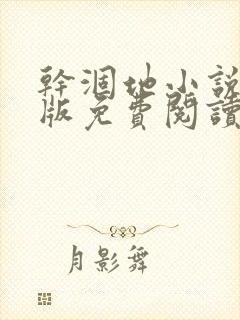 幹涸地小說
版免費閱讀
月影舞